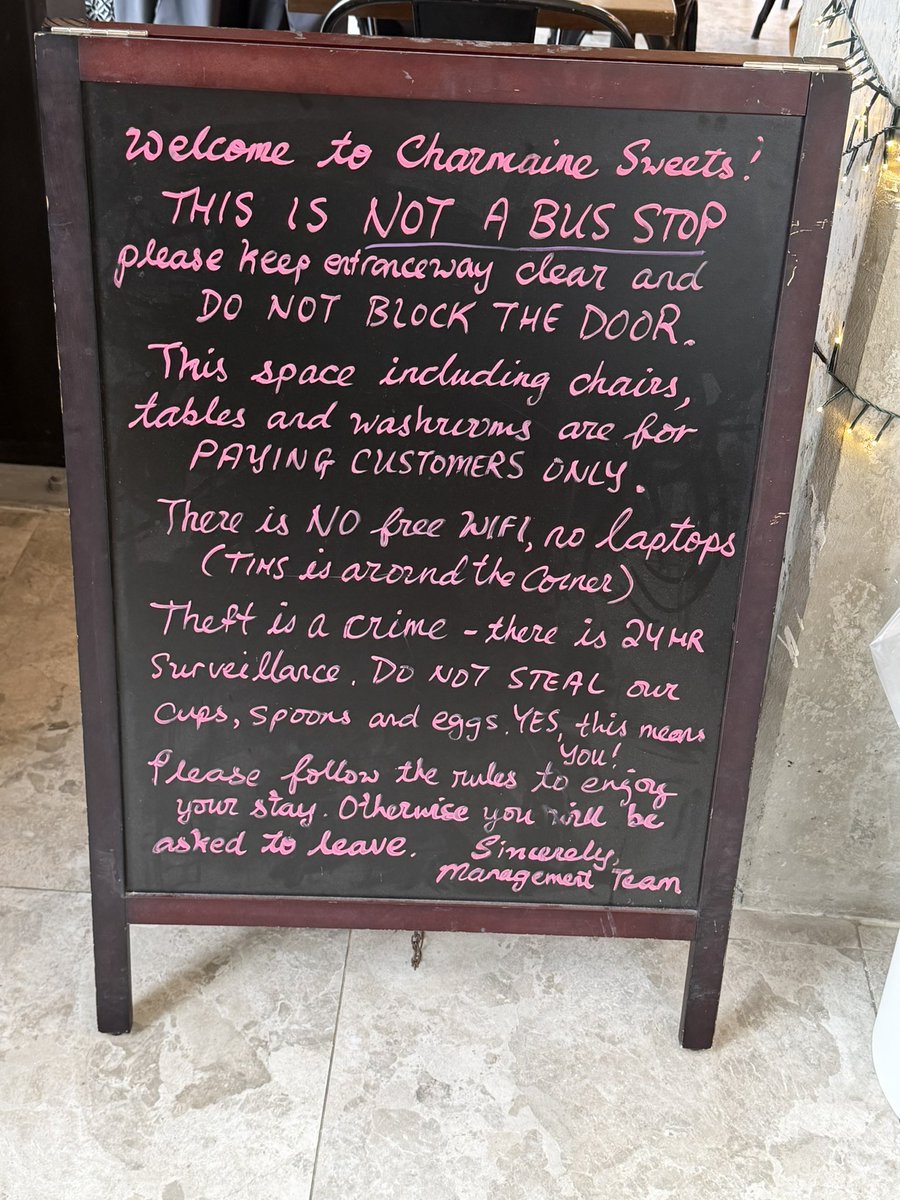 Welcome to Charmaine Sweets!
THIS IS NOT A BUS STOP
please keep entranceway clear and
DO NOT BLOCK THE DOOR.
This space including chairs,
tables and washrooms are for
PAYING CUSTOMERS ONLY.
There is NO free WIFI, no laptops
(TIMS is around the Corner)
Theft is a crime - there is 24 HR
Surveillance. DO NOT STEAL our
cups, spoons and eggs. YES, this means
YOU!
Please follow the rules to enjoy
your stay. Otherwise you will be
asked to leave.
Sincerely,
Management Team